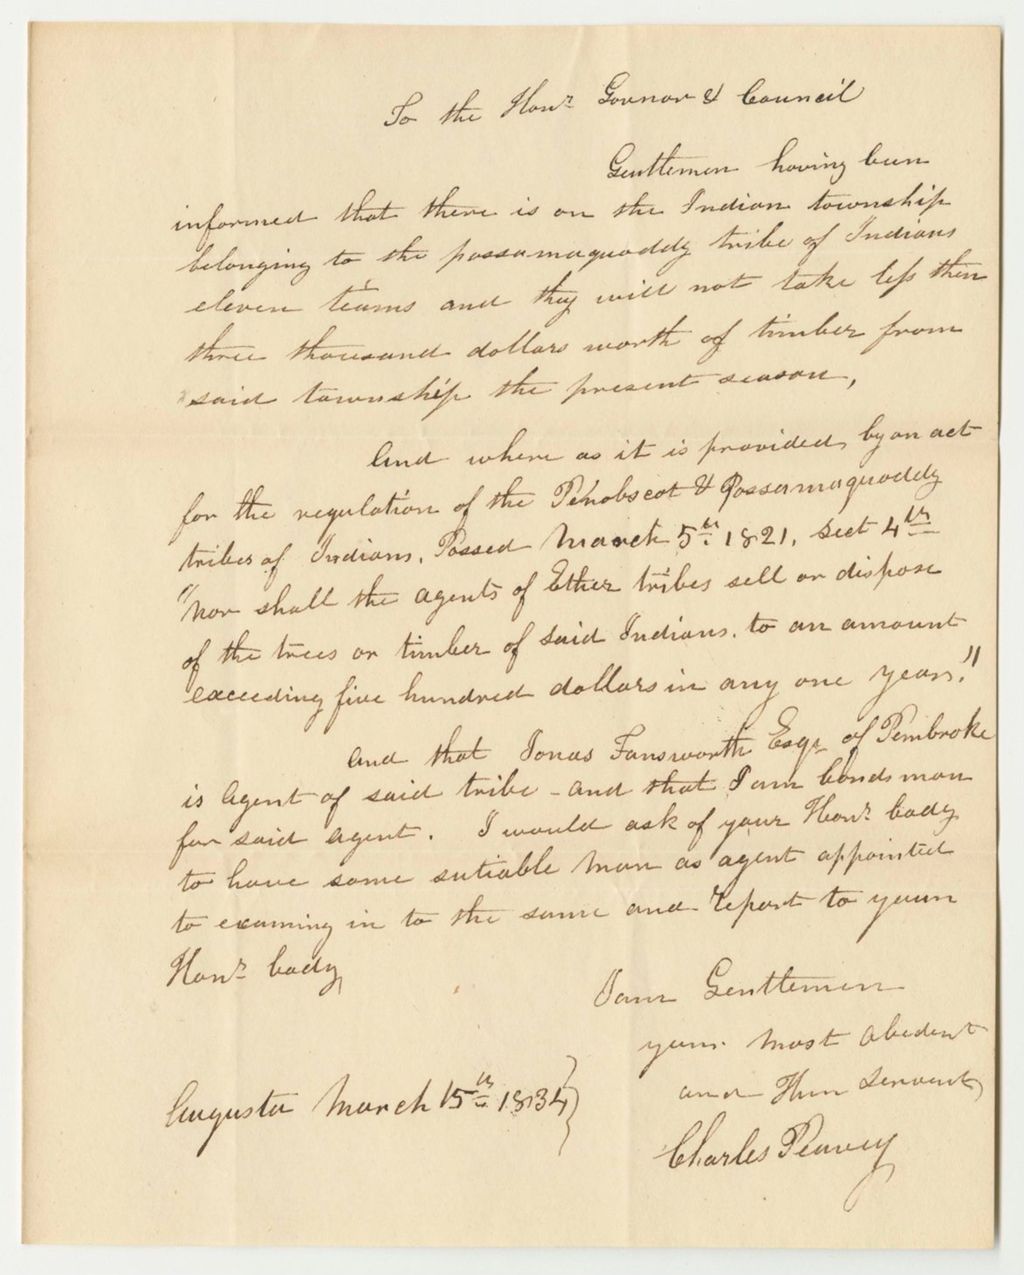 To the Honr Govnor & Council
Gentlemen having been
informed that there is on the Indian township
belonging to the passamaquoddy tribe of Indians
eleven teams and they will not take less then
three thousand dollars worth of timber from
said township the present season,
And where as it is provided by an act
for the regulation of the Penobscot & Passamaquoddy
tribes of Indians, Passed March 5th 1821, sect 4th
"Nor shall the agents of Either tribes sell or dispose
of the trees or timber of said Indians. to an amount
exceeding five hundred dollars in any one year."
And that Jonas Fansworth Esqr of Pembroke
is Agent of said tribe - and that I am bondsman
for said agent. I would ask of your Honr body
to have some sutiable man as agent appointed
to examing in to the same and report to youn
Honr body
I am Gentlemen
your most obedent
and Hum servent
Augusta March 15th 1834
Charles Peavey